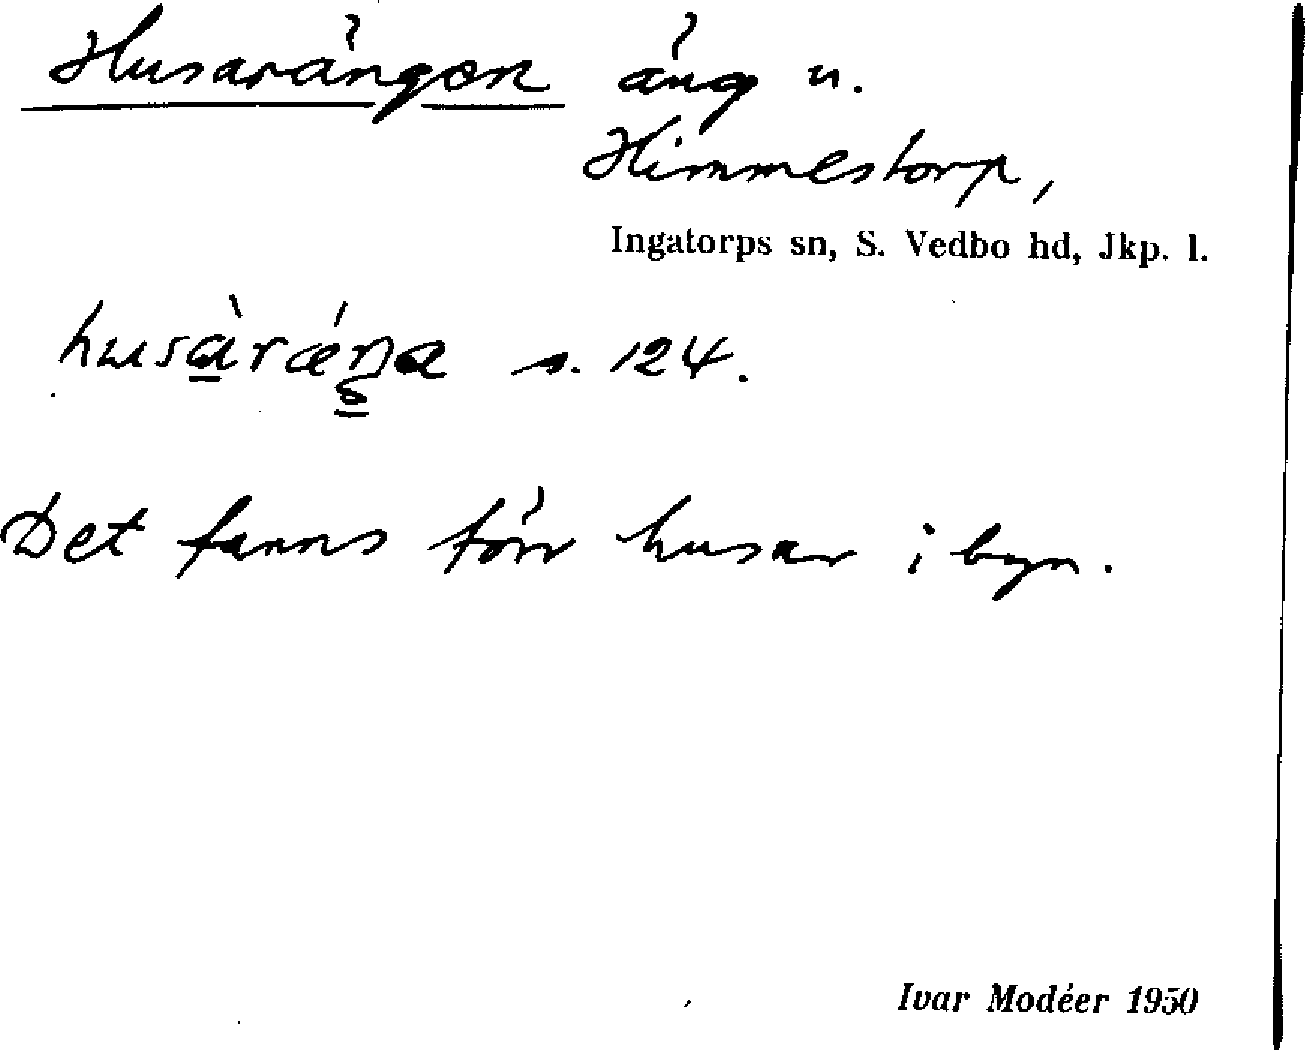 Husarängen äng u.
Himmestorp,
Ingatorps sn, S. Vedbo hd, Jkp. l.
s. 124.
Det fanns förr husar i byn.
Ivar Modéer 1950